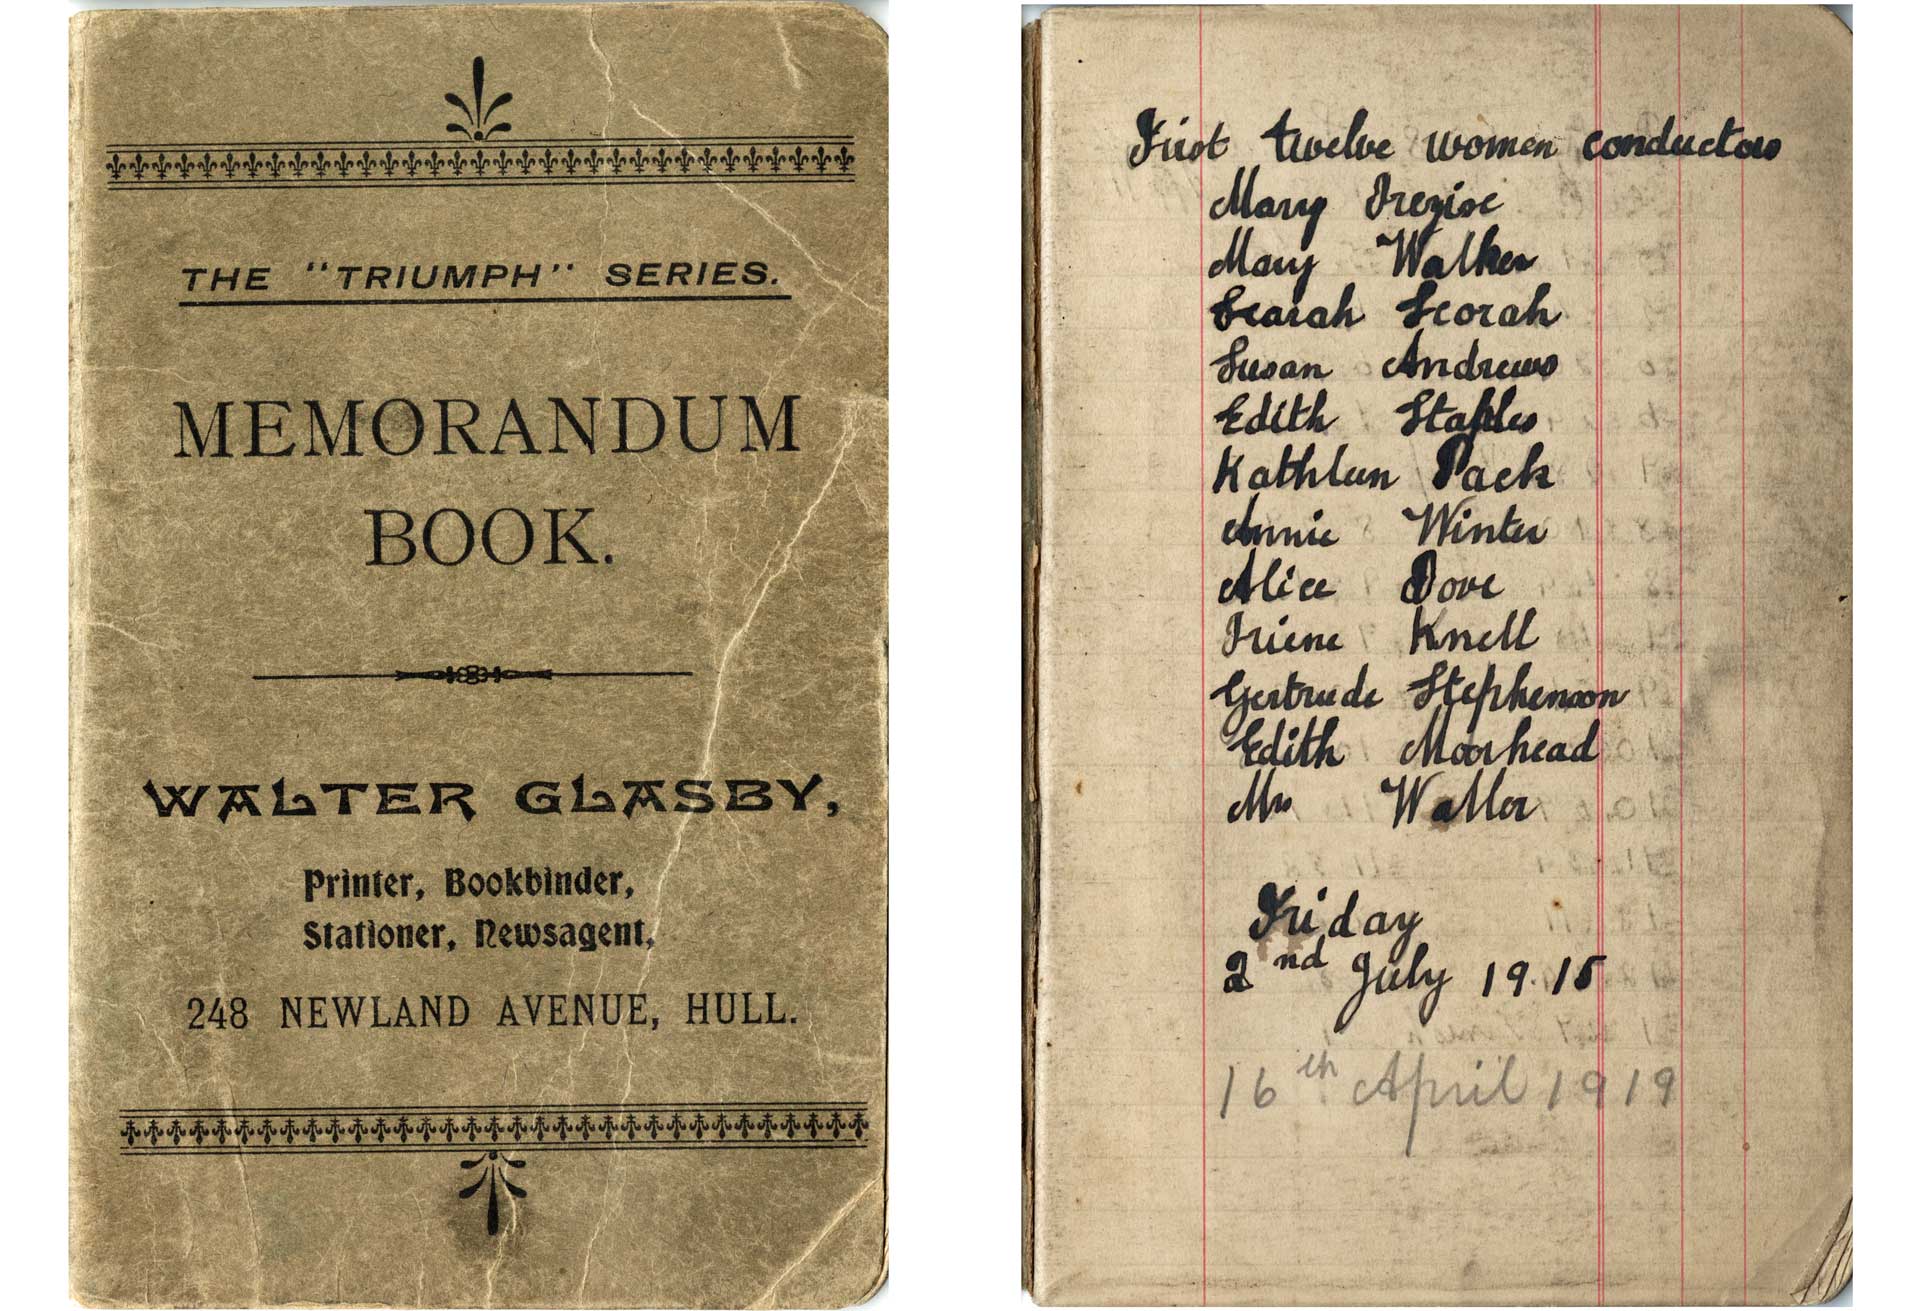 THE "TRIUMPH" SERIES.
MEMORANDUM
BOOK.
WALTER GLASBY,
Printer, Bookbinder,
Stationer, Newsagent,
248 NEWLAND AVENUE, HULL.
First twelve women conductors
Mary Trezise
Mary Walker
Searah Scorah
Susan Andrews
Edith Staples
Kathleen Pack
Annie Winter
Alice Dove
Iriene Knell
Gertrude Stephenson
Edith Moorhead
Mrs Waller
Friday
2nd July 19.15
16th April 1919